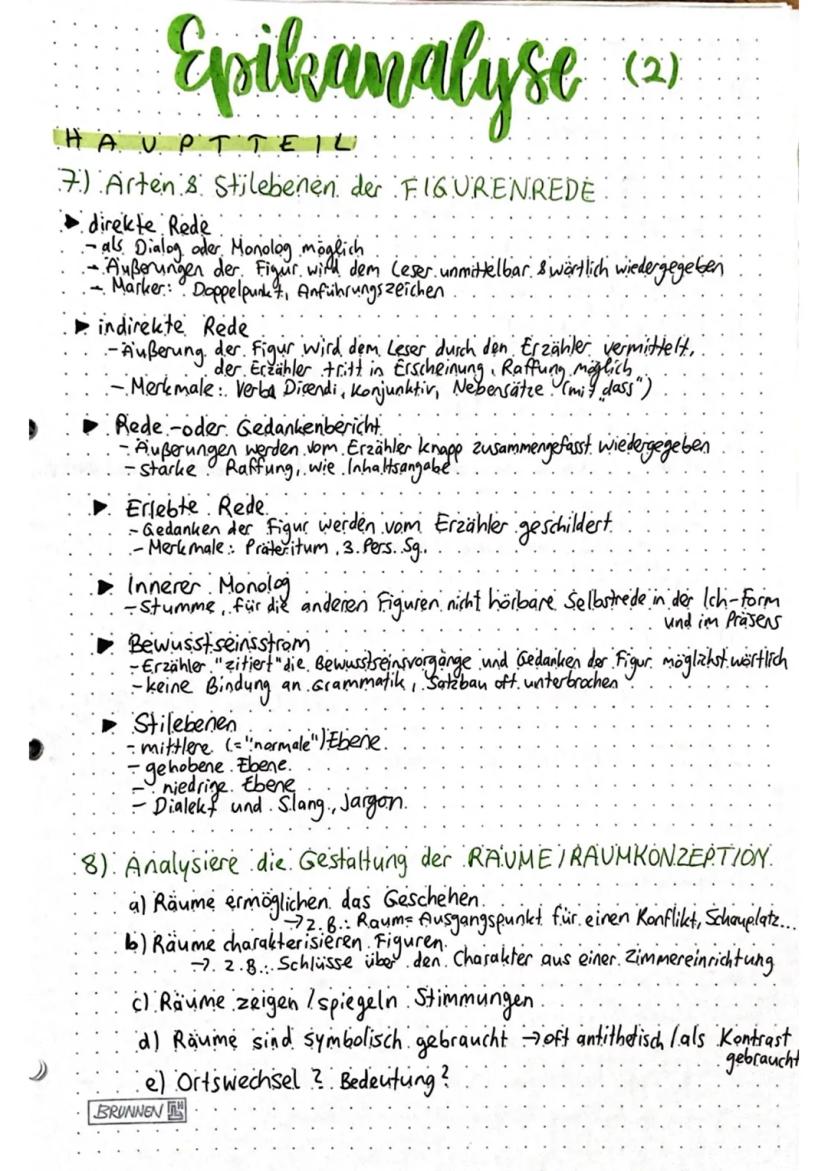 Epikanalyse (2)
HAUPTTEIL
7) Arten & Stilebenen der FIGURENREDE
▶ direkte Rede
- als Dialog oder Monolog möglich
- Äußerungen der Figur wird dem Leser unmittelbar & wörtlich wiedergegeben
- Marker: Doppelpunkt, Anführungszeichen
▶ indirekte Rede
- Äußerung der Figur wird dem Leser durch den Erzähler vermittelt,
der Erzähler tritt in Erscheinung, Raffung möglich
- Merkmale: Verba Dicendi, Konjunktiv, Nebensätze (mit "dass")
▶ Rede- oder Gedankenbericht
- Äußerungen werden vom Erzähler knapp zusammengefasst wiedergegeben
- starke Raffung, wie Inhaltsangabe
▶ Erlebte Rede
- Gedanken der Figur werden vom Erzähler geschildert
- Merkmale: Präteritum, 3. Pers. Sg.
▶ Innerer Monolog
- Stumme, für die anderen Figuren nicht hörbare Selbstrede in der Ich-Form
und im Präsens
▶ Bewusstseinsstrom
- Erzähler "zitiert" die Bewusstseinsvorgänge und Gedanken der Figur möglichst wörtlich
- keine Bindung an Grammatik, Satzbau oft unterbrochen
▶ Stilebenen
- mittlere (="normale") Ebene
- gehobene Ebene
- niedrige Ebene
- Dialekt und Slang, Jargon
8) Analysiere die Gestaltung der RÄUME/RAUMKONZEPTION
a) Räume ermöglichen das Geschehen
→ z.B.: Raum= Ausgangspunkt für einen Konflikt, Schauplatz...
b) Räume charakterisieren Figuren
→ z.B.: Schlüsse über den Charakter aus einer Zimmereinrichtung
c) Räume zeigen / spiegeln Stimmungen
d) Räume sind symbolisch gebraucht → oft antithetisch / als Kontrast
gebraucht
e) Ortswechsel? Bedeutung?
BRUNNEN